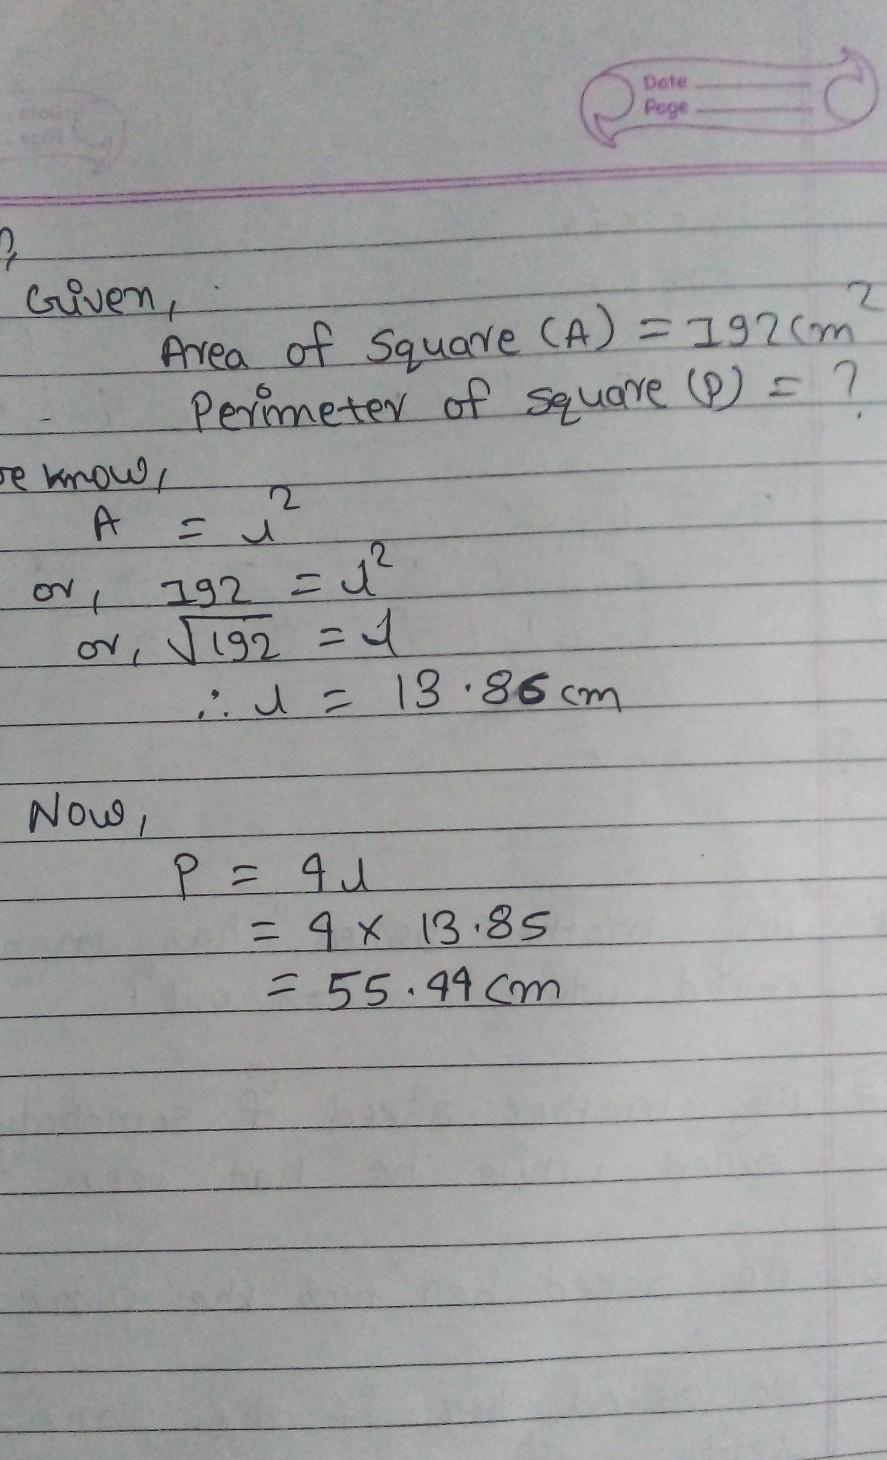 Date
Page
Given,
Area of Square (A) = 192cm²
Perimeter of square (P) = ?
we know,
A = l²
or, 192 = l²
or, √192 = l
∴ l = 13.86cm
Now,
P = 4l
= 4 x 13.85
= 55.44cm